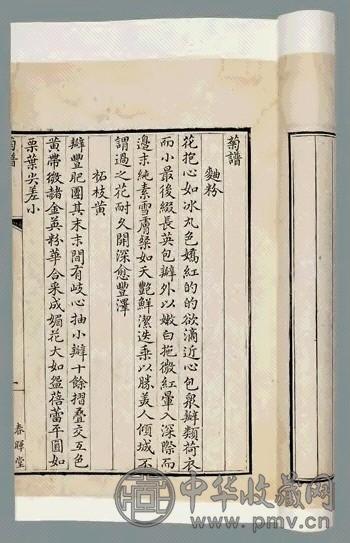 菊譜
麯粉
花抱心如冰丸色嬌紅的的欲滴近心包泉瓣類荷衣
而小最後綴長英包瓣外以嫩白拖微紅暈入深際而
邊末純素雪膚縏如天艷鮮潔迭乗以勝美人傾城不
謂過之花耐久開深愈豐澤
柘枝黃
瓣豐肥團其末末間有歧心抽小瓣十餘摺疊交互色
黃帶微赭金英粉華合采成媚花大如盌蓓蕾平圓如
栗葉尖差小
菊譜
春暉堂
中华收藏网
www.pmv.cn